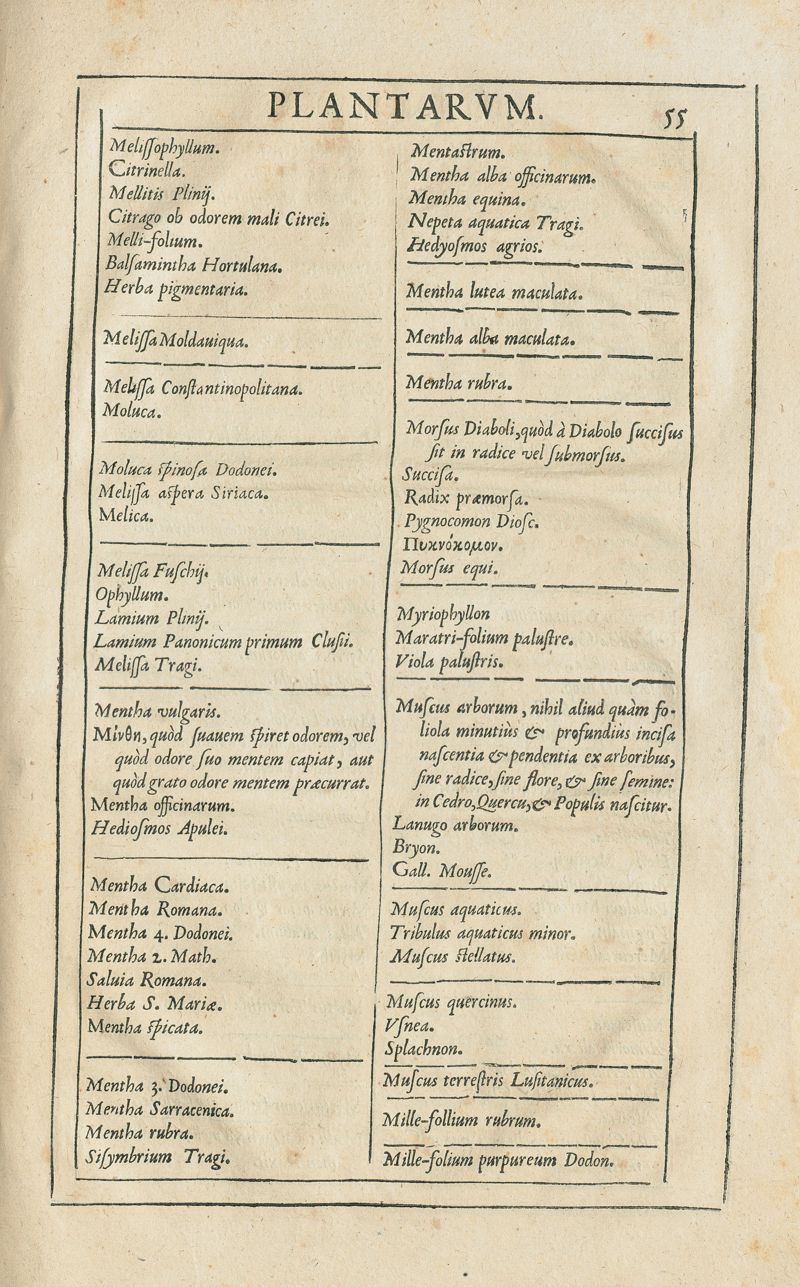 PLANTARVM.
55
Meliſſophyllum.
Citrinella.
Mellitis Plinij.
Citrago ob odorem mali Citrei.
Melli-folium.
Balſamintha Hortulana.
Herba pigmentaria.
Meliſſa Moldauiqua.
Meliſſa Conſtantinopolitana.
Moluca.
Moluca ſpinoſa Dodonei.
Meliſſa aſpera Siriaca.
Melica.
Meliſſa Fuſchij.
Ophyllum.
Lamium Plinij.
Lamium Panonicum primum Cluſii.
Meliſſa Tragi.
Mentha vulgaris.
Μίνθη, quòd ſuauem ſpiret odorem, vel
quòd odore ſuo mentem capiat, aut
quòd grato odore mentem præcurrat.
Mentha officinarum.
Hedioſmos Apulei.
Mentha Cardiaca.
Mentha Romana.
Mentha 4. Dodonei.
Mentha 2. Math.
Saluia Romana.
Herba S. Mariæ.
Mentha ſpicata.
Mentha 3. Dodonei.
Mentha Sarracenica.
Mentha rubra.
Siſymbrium Tragi.
Mentaſtrum.
Mentha alba officinarum.
Mentha equina.
Nepeta aquatica Tragi.
Hedyoſmos agrios.
Mentha lutea maculata.
Mentha alba maculata.
Mentha rubra.
Morſus Diaboli, quòd à Diabolo ſucciſus
ſit in radice vel ſubmorſus.
Succiſa.
Radix præmorſa.
Pygnocomon Dioſc.
Πυκνόκομον.
Morſus equi.
Myriophyllon
Maratri-folium paluſtre.
Viola paluſtris.
Muſcus arborum, nihil aliud quàm fo-
liola minutiùs & profundiùs inciſa
naſcentia & pendentia ex arboribus,
ſine radice, ſine flore, & ſine ſemine:
in Cedro, Quercu, & Populis naſcitur.
Lanugo arborum.
Bryon.
Gall. Mouſſe.
Muſcus aquaticus.
Tribulus aquaticus minor.
Muſcus ſtellatus.
Muſcus quercinus.
Vſnea.
Splachnon.
Muſcus terreſtris Luſitanicus.
Mille-follium rubrum.
Mille-folium purpureum Dodon.